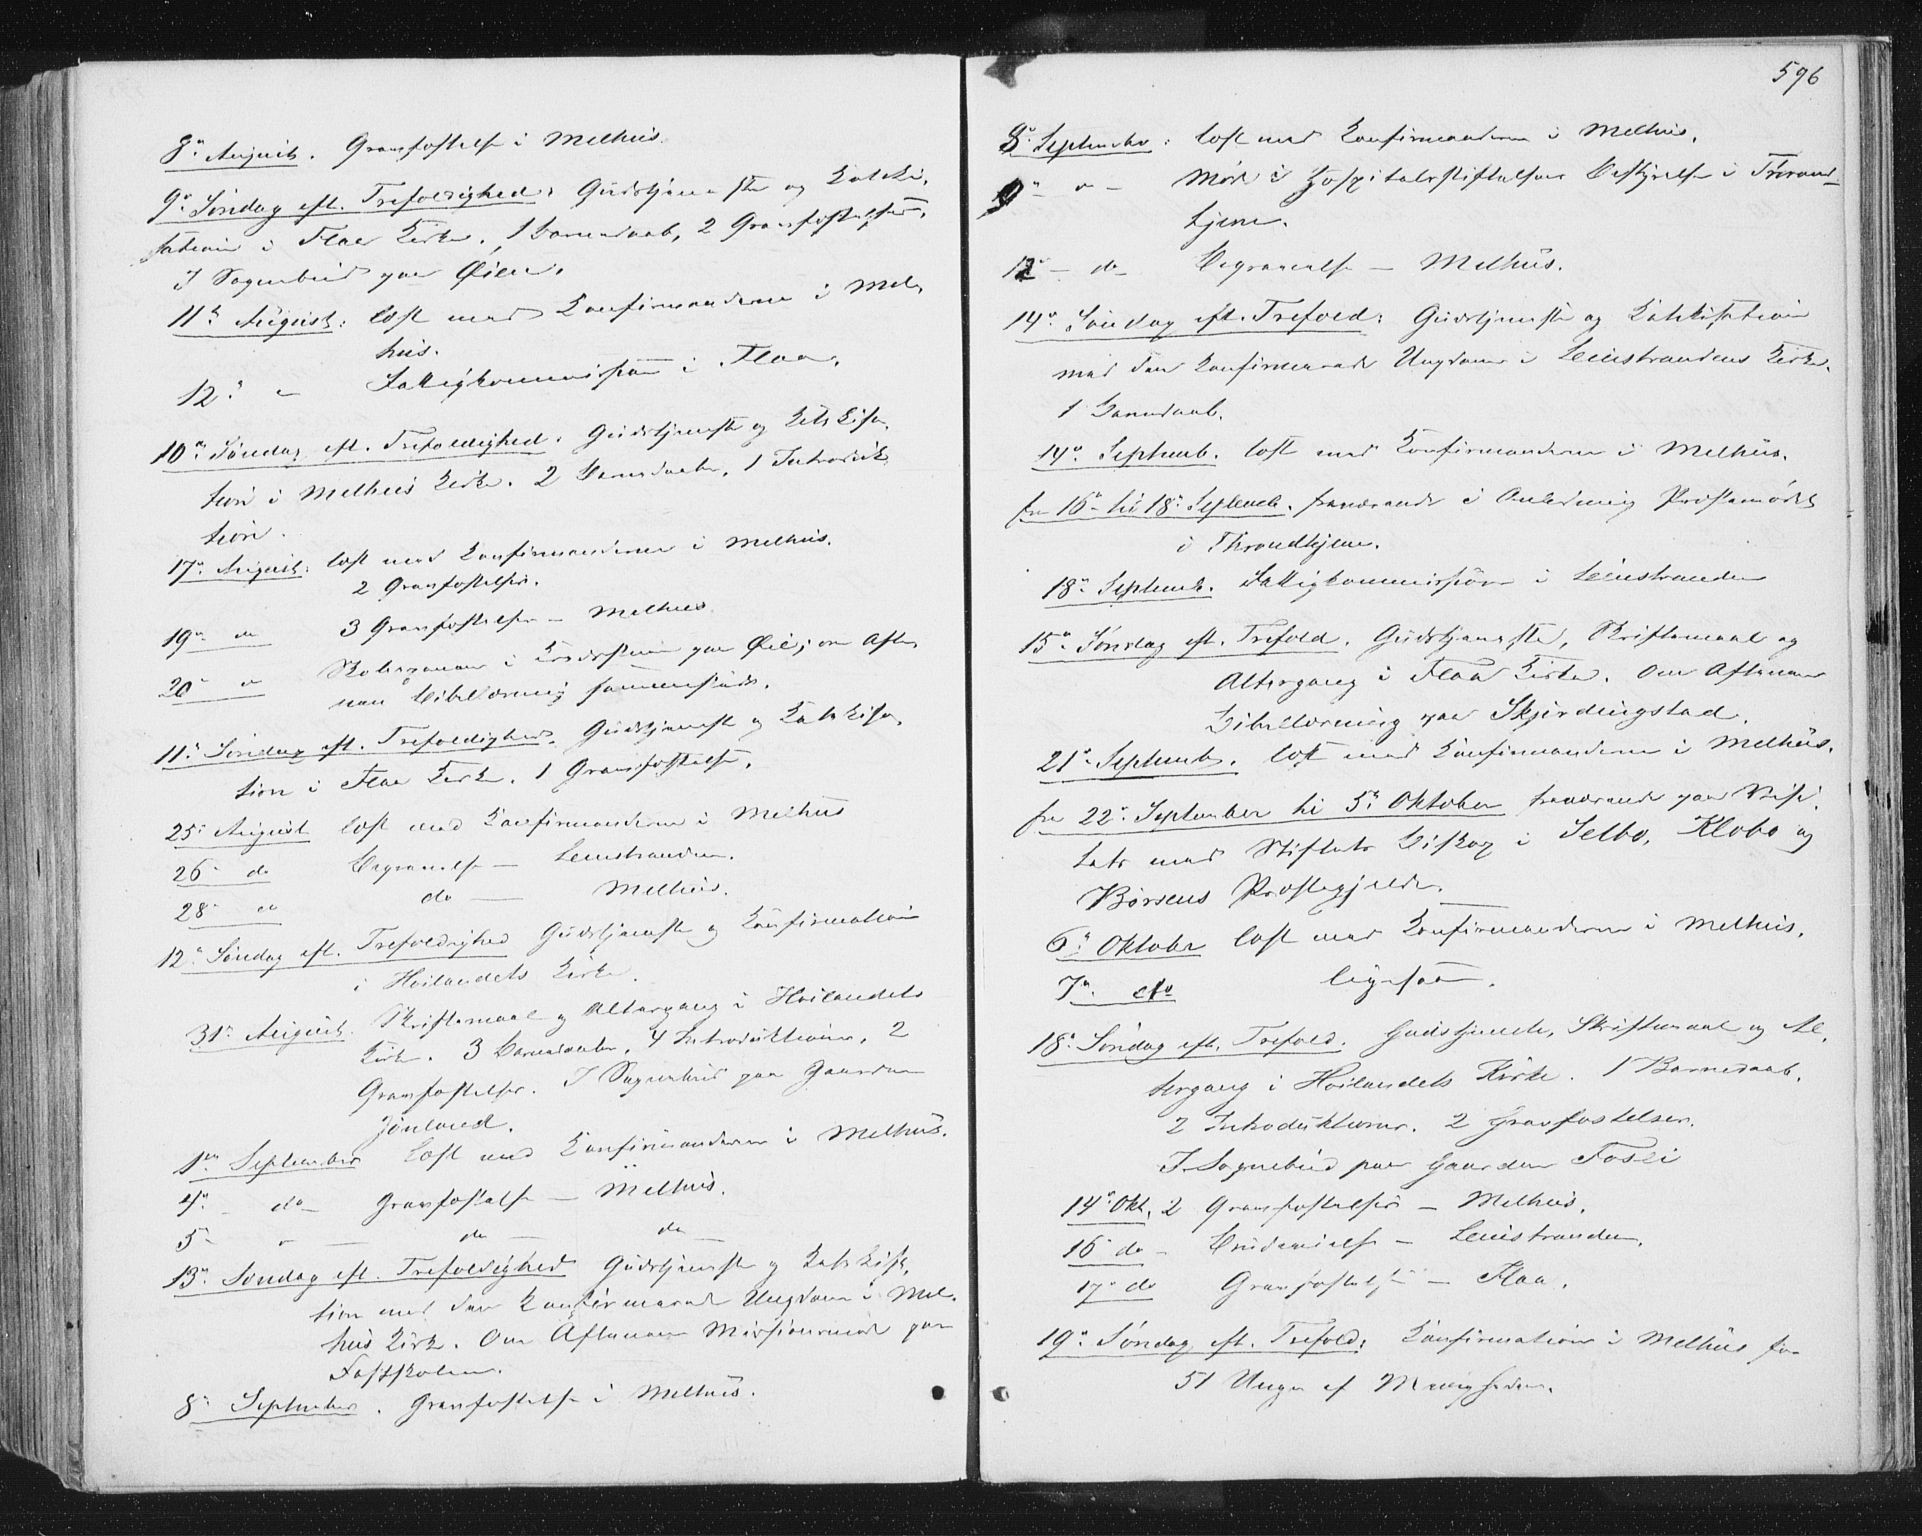 8de August. Gravfæstelse i Melhus.
9de Søndag eft. Trefoldighed: Gudstjeneste og Kateki-
sation i Flaa Kirke. 1 Barnedaab, 2 Gravfæstelser.
I Sognebud paa Øien.
11te August: læst med Konfirmanderne i Mel-
hus.
12te " Fattigkommission i Flaa.
10de Søndag eft. Trefoldighed. Gudstjeneste og Katekisa-
tion i Melhus Kirke. 2 Barnedaabe, 1 Introduk-
tion.
17de August: læst med Konfirmanderne i Melhus.
2 Gravfæstelser.
19de do 3 Gravfæstelser – Melhus
20de " i paa Øie; om Afte-
nen Bibellæsning sammesteds.
11te Søndag eft. Trefoldighed. Gudstjeneste og Katekisa-
tion i Flaa Kirke. 1 Gravfæstelse.
25de August læst med Konfirmanderne i Melhus
26de do Begravelse – Leinstranden.
28de do do – Melhus.
12te Søndag eft. Trefoldighed Gudstjeneste og Konfirmation
i Høilandets Kirke.
31te August. Skriftemaal og Altergang i Høilandets
Kirke. 3 Barnedaabe, 4 Introduktioner, 2
Gravfæstelser. I Sognebud paa Gaarden
.
1ste September Læst med Konfirmanderne i Melhus.
4de – do – Gravfæstelse – Melhus.
5te – " – do – do –
13de Søndag eft. Trefoldighed Gudstjeneste og Katekisa-
tion med den konfirmerede Ungdom i Mel-
hus Kirke. Om Aftenen Missionsmøde paa
Fastskolen.
8de September. Gravfæstelse i Melhus.
596
8de September: læst med Konfirmanderne i Melhus.
9de " – Møde i Hospitalsstiftelsens Bestyrelse i Thrond-
hjem.
12te – do – Begravelse – Melhus.
14de Søndag eft. Trefold: Gudstjeneste og Katekisation
med den konfirmerede Ungdom i Leinstrandens Kirke.
1 Barnedaab.
14de Septemb. læst med Konfirmanderne i Melhus.
fra 16de til 18de Septemb. fraværende i Anledning Præstemødet
i Throndhjem.
18de Septemb. Fattigkommission i Leinstranden
15de Søndag eft. Trefold. Gudstjeneste, Skriftemaal og
Altergang i Flaa Kirke. Om Aftenen
Bibellæsning paa Skjerdingstad.
21de Septemb. læst med Konfirmanderne i Melhus.
fra 22de September til 5te Oktober fraværende paa Visi-
tats med Stiftets Biskop i Selbo, Klæbo og
Børsens Præstegjelde.
6te Oktober læst med Konfirmanderne i Melhus.
7de do ligesaa.
18de Søndag eft. Trefold. Gudstjeneste, Skriftemaal og Al-
tergang i Høilandets Kirke. 1 Barnedaab.
2 Introduktioner. 2 Gravfæstelser.
I Sognebud paa Gaarden
14de Okt. 2 Gravfæstelser – Melhus.
16de do – – Leinstranden.
17de do Gravfæstelse – Flaa.
19de Søndag eft. Trefold: Konfirmation i Melhus for
51 Unge af Menigheden.